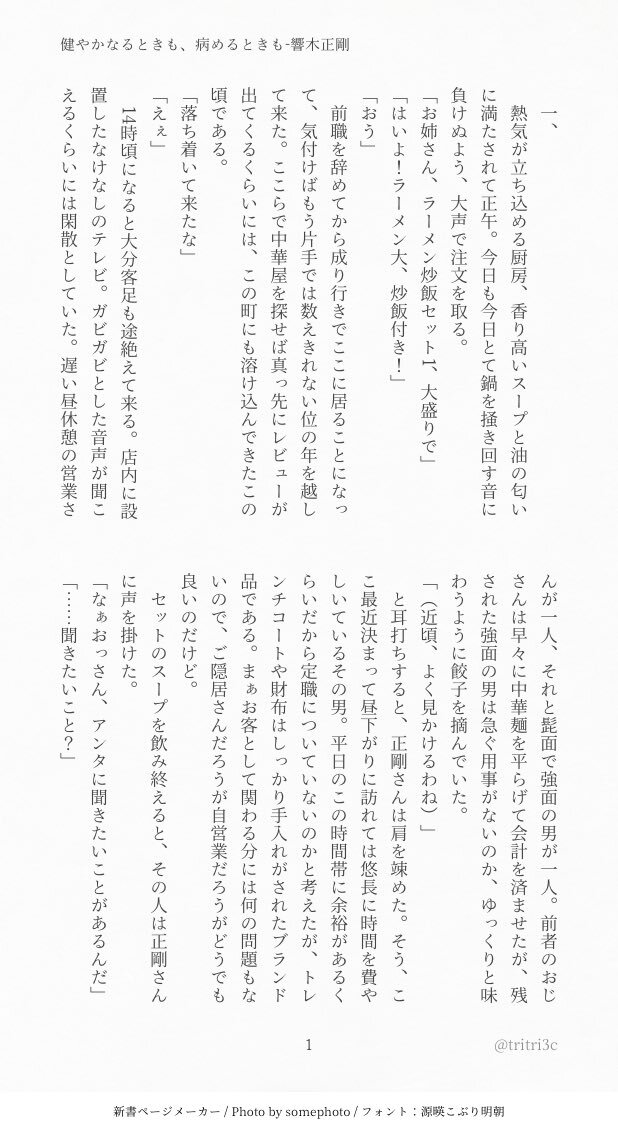 健やかなるときも、病めるときも-響木正剛
一、
熱気が立ち込める厨房、香り高いスープと油の匂い
に満たされて正午。今日も今日とて鍋を掻き回す音に
負けぬよう、大声で注文を取る。
「お姉さん、ラーメン炒飯セット1、大盛りで」
「はいよ！ラーメン大、炒飯付き！」
「おう」
前職を辞めてから成り行きでここに居ることになっ
て、気付けばもう片手では数えきれない位の年を越し
て来た。ここらで中華屋を探せば真っ先にレビューが
出てくるくらいには、この町にも溶け込んできたこの
頃である。
「落ち着いて来たな」
「えぇ」
14時頃になると大分客足も途絶えて来る。店内に設
置したなけなしのテレビ。ガビガビとした音声が聞こ
えるくらいには閑散としていた。遅い昼休憩の営業さ
んが一人、それと髭面で強面の男が一人。前者のおじ
さんは早々に中華麺を平らげて会計を済ませたが、残
された強面の男は急ぐ用事がないのか、ゆっくりと味
わうように餃子を摘んでいた。
「（近頃、よく見かけるわね）」
と耳打ちすると、正剛さんは肩を竦めた。そう、こ
こ最近決まって昼下がりに訪れては悠長に時間を費や
しいているその男。平日のこの時間帯に余裕があるく
らいだから定職についていないのかと考えたが、トレ
ンチコートや財布はしっかり手入れがされたブランド
品である。まぁお客として関わる分には何の問題もな
いので、ご隠居さんだろうが自営業だろうがどうでも
良いのだけど。
セットのスープを飲み終えると、その人は正剛さん
に声を掛けた。
「なぁおっさん、アンタに聞きたいことがあるんだ」
「……聞きたいこと？」
1
@tritri3c
新書ページメーカー / Photo by somephoto / フォント：源暎こぶり明朝